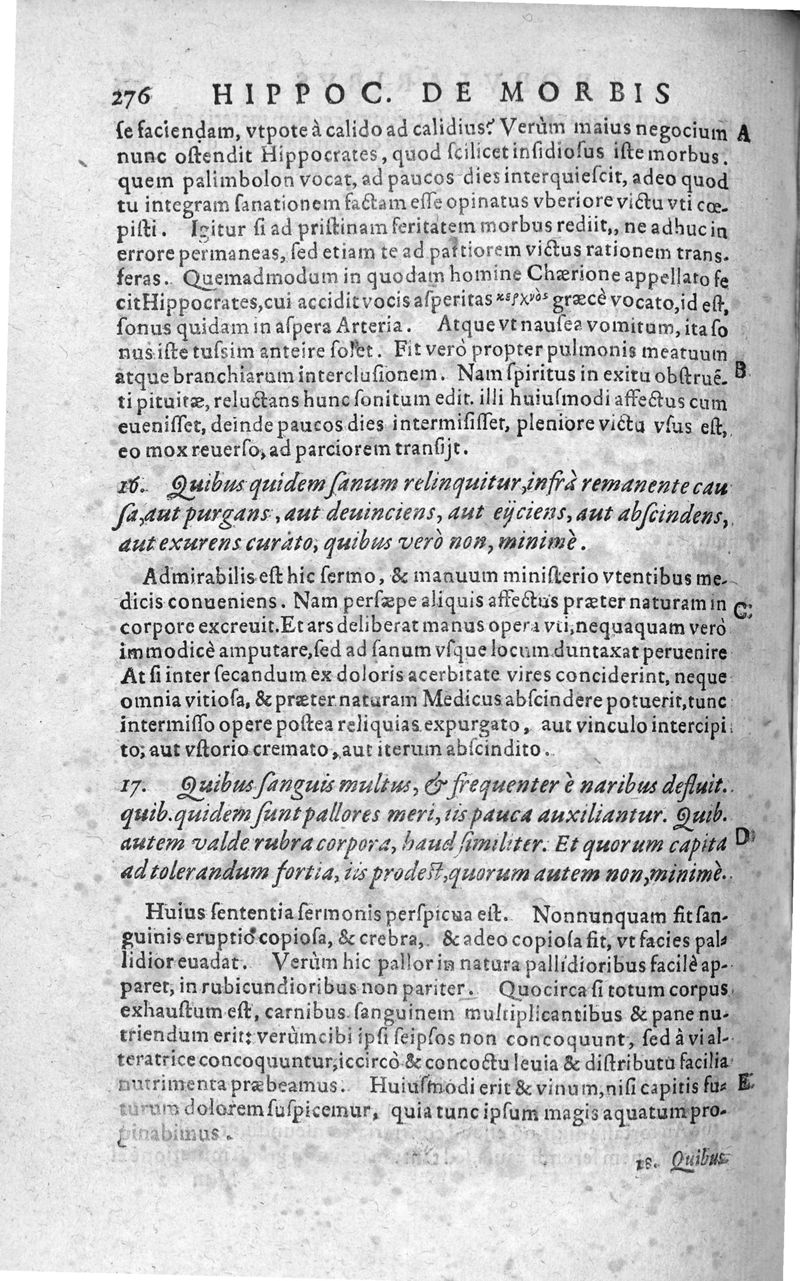 276 HIPPOC. DE MORBIS
ſe faciendam, vtpote à calido ad calidius? Verùm maius negocium A
nunc oſtendit Hippocrates, quod ſcilicet inſidioſus iſte morbus.
quem palimbolon vocat, ad paucos dies interquieſcit, adeo quod
tu integram ſanationem factam eſſe opinatus vberiore victu vti cœ-
piſti. Igitur ſi ad priſtinam feritatem morbus rediit,, ne adhuc in
errore permaneas, ſed etiam te ad partiorem victus rationem trans-
feras. Quemadmodum in quodam homine Chærione appellato fe
cit Hippocrates, cui accidit vocis aſperitas græcè vocato, id eſt,
ſonus quidam in aſpera Arteria. Atque vt nauſea vomitum, ita ſo
nus iſte tuſsim anteire ſolet. Fit verò propter pulmonis meatuum
atque branchiarum intercluſionem. Nam ſpiritus in exitu obſtruē- B
ti pituitæ, reluctans hunc ſonitum edit. illi huiuſmodi affectus cum
eueniſſet, deinde paucos dies intermiſiſſet, pleniore victu vſus eſt,
eo mox reuerſo, ad parciorem tranſijt.
16. Quibus quidem ſanum relinquitur, infrà remanente cau
ſa, aut purgans, aut deuinciens, aut eijciens, aut abſcindens,
aut exurens curato, quibus verò non, minimè.
Admirabilis eſt hic ſermo, & manuum miniſterio vtentibus me-
dicis conueniens. Nam perſæpe aliquis affectus præter naturam in C
corpore excreuit. Et ars deliberat manus opera vti, nequaquam verò
immodicè amputare, ſed ad ſanum vſque locum duntaxat peruenire
At ſi inter ſecandum ex doloris acerbitate vires conciderint, neque
omnia vitioſa, & præter naturam Medicus abſcindere potuerit, tunc
intermiſſo opere poſtea reliquias expurgato, aut vinculo intercipi
to; aut vſtorio cremato, aut iterum abſcindito.
17. Quibus ſanguis multus, & frequenter è naribus defluit.
quib. quidem ſunt pallores meri, iis pauca auxiliantur. Quib.
autem valde rubra corpora, haud ſimiliter. Et quorum capita D
ad tolerandum fortia, iis prodeſt, quorum autem non, minimè.
Huius ſententia ſermonis perſpicua eſt. Nonnunquam fit ſan-
guinis eruptio copioſa, & crebra, & adeo copioſa fit, vt facies pal-
lidior euadat. Verùm hic pallor in natura pallidioribus facilè ap-
paret, in rubicundioribus non pariter. Quocirca ſi totum corpus
exhauſtum eſt, carnibus ſanguinem multiplicantibus & pane nu-
triendum erit: verùm cibi ipſi ſeipſos non concoquunt, ſed à vi al-
teratrice concoquuntur, iccircò & concoctu leuia & diſtributu facilia
nutrimenta præbeamus. Huiuſmodi erit & vinum, niſi capitis fu- E
turum dolorem ſuſpicemur, quia tunc ipſum magis aquatum pro-
pinabimus.
18. Quibus